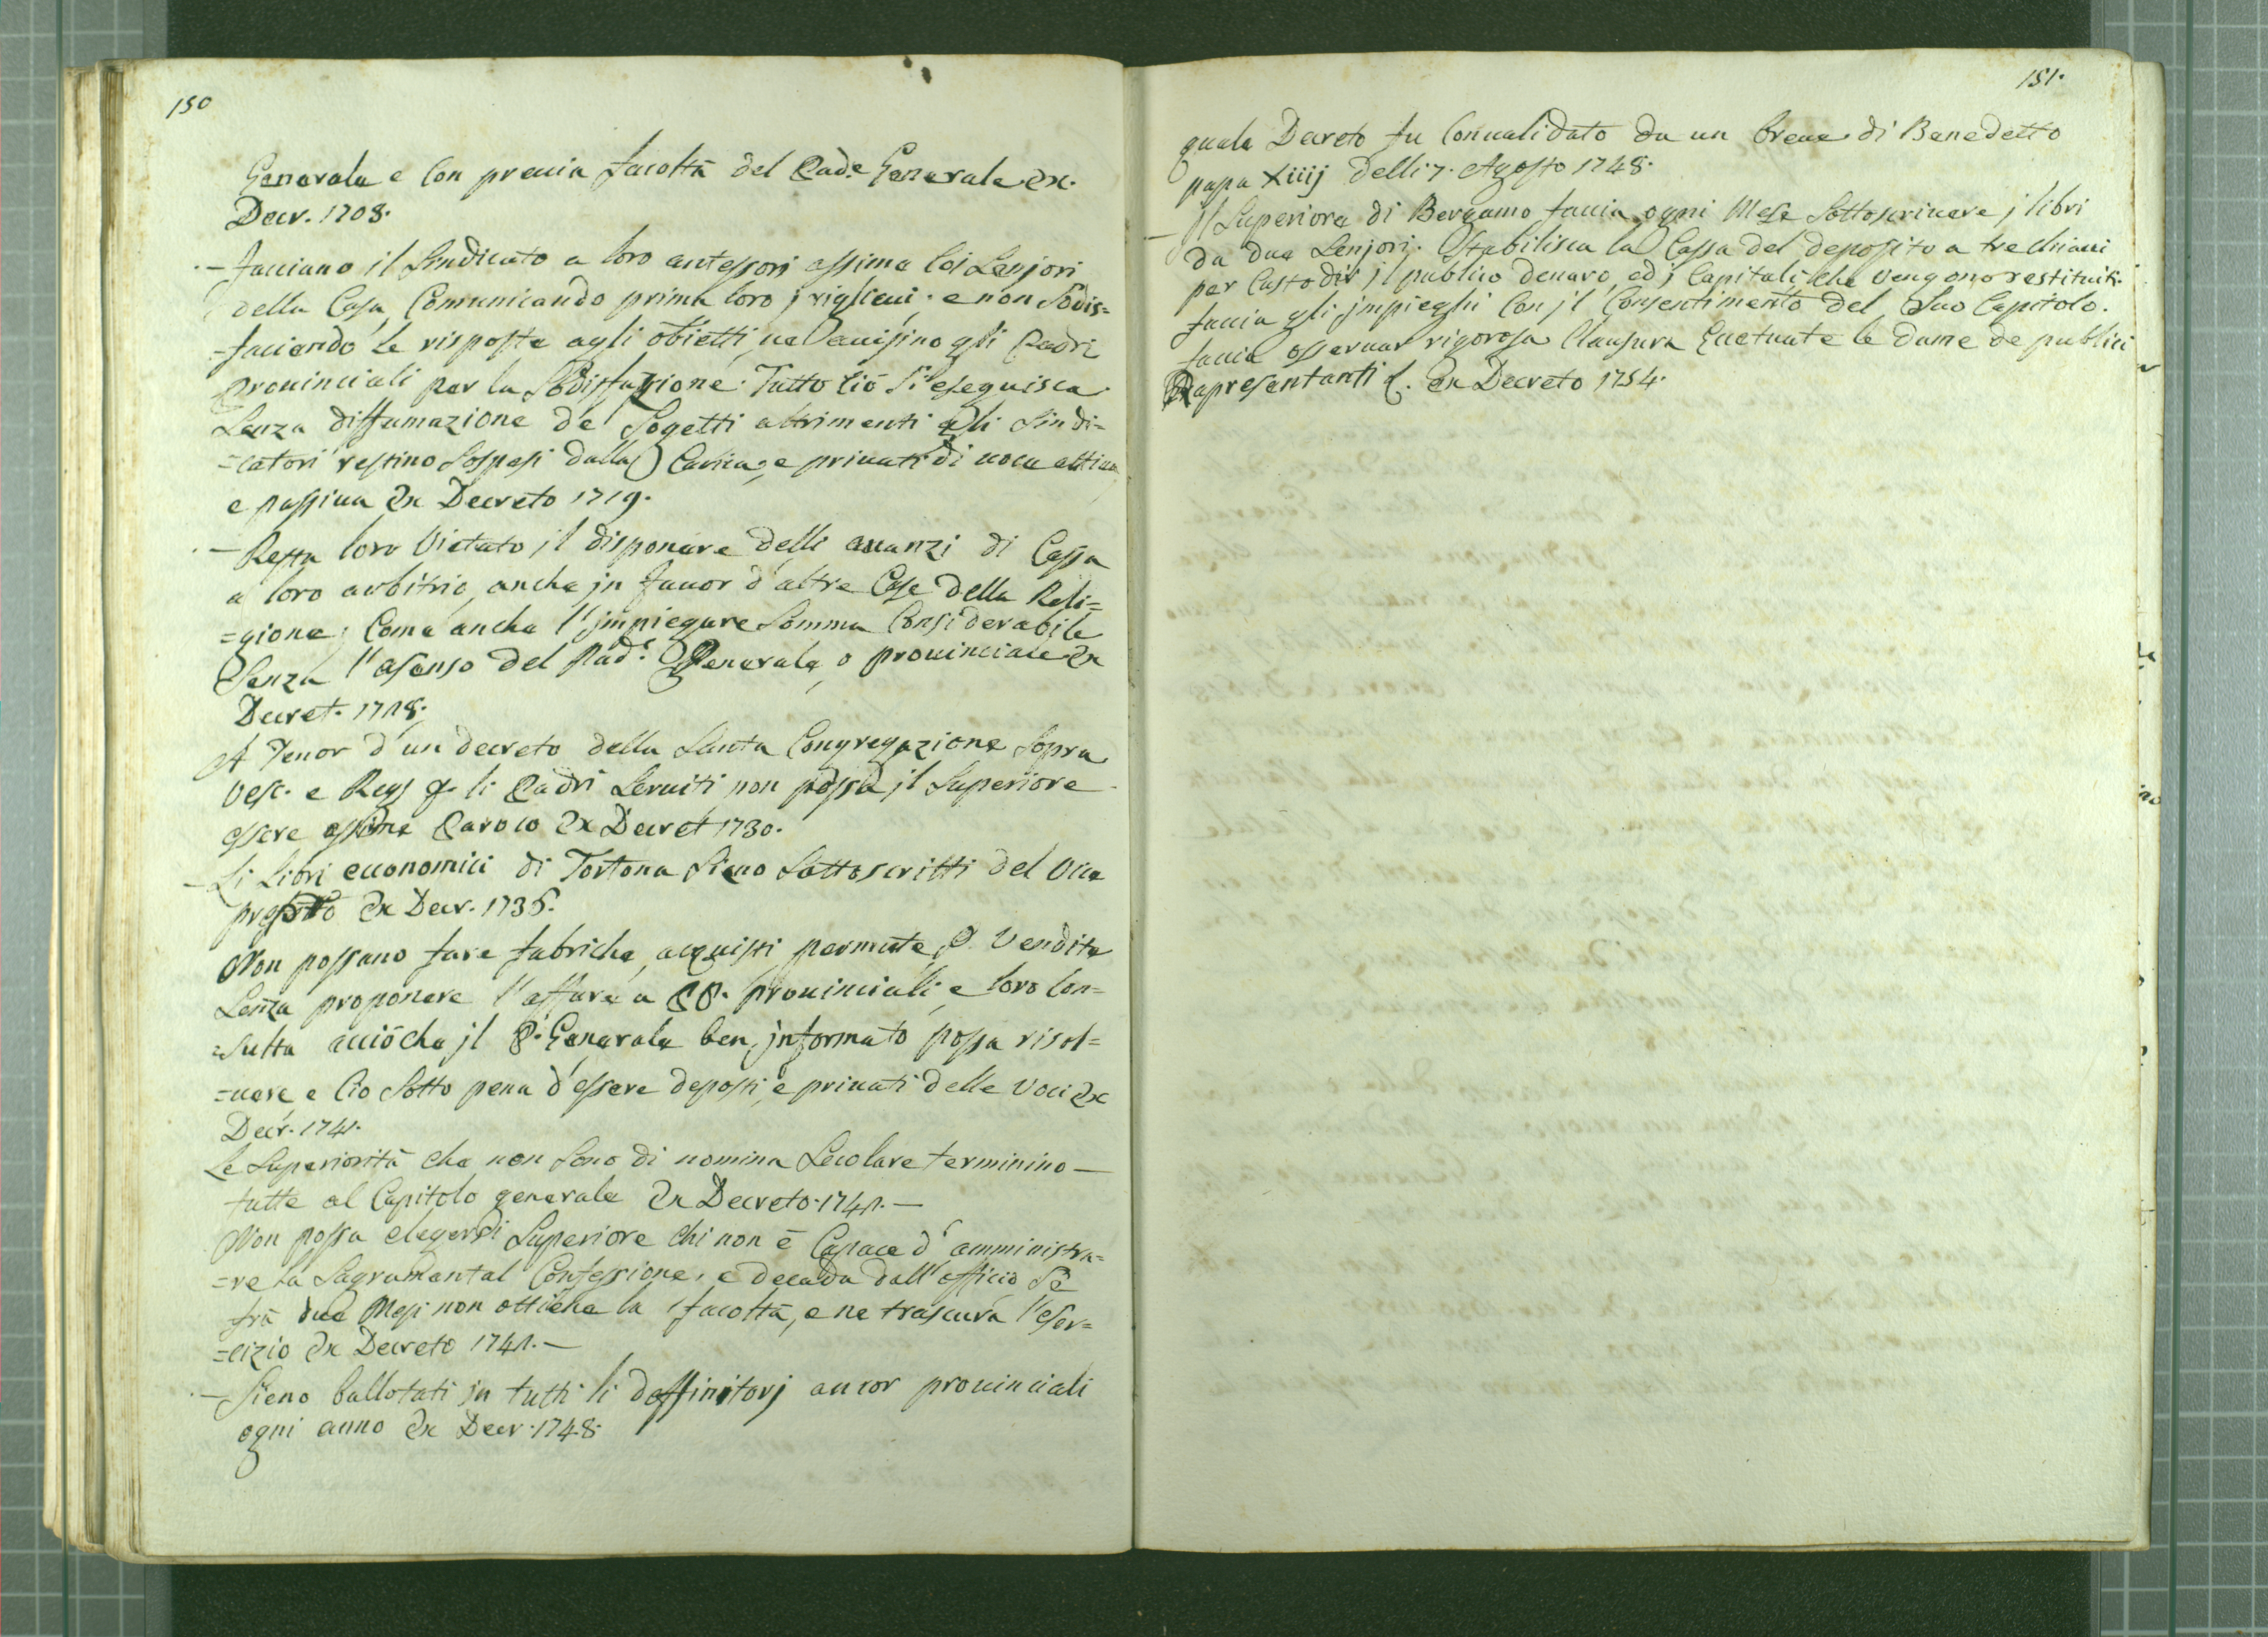 150
Generale e con preuia facoltà del Pad.e Generale Ex.
Decr. 1708.
- Facciano il Sindicato a loro antessori assime coi Senjori
della Casa, Comunicando prima loro j riglieui; e non Sodis=
=facendo le risposte agli obietti, ne auisino gli Padri
prouinciali per la Sodisfazione. Tutto ciò si eseguisca
Senza diffamazione de Sogetti altrimenti gli Sindi=
=catori restino Sospesi dalla Carica, e priuati di uoce attiua
e passiua Ex Decreto 1719.
- Resta loro Vietato jl disponere delli auanzi di Cassa
a loro arbitrio, anche jn fauor d'altre Case della Reli=
=gione; Come anche l'jmpiegare Somma Considerabile
Senza l'asenso del Pad.e Generale, o prouinciale Ex
Decret. 1718.
A Tenor d'un decreto della Santa Congregazione Sopra
Vesc. e Reg. li Padri Seruiti non possa jl Superiore
essere assime Paroco Ex Decret 1730.
- Li Libri economici di Tortona Sieno Sottoscritti del Vice
Ex Decr. 1735.
Non possano fare fabriche, acquisti permute, o Vendite
Senza proponere l'affare a PP. prouinciali, e loro Con=
=sulta acciòche jl P. Generale ben jnformato possa risol=
=uere e Ciò Sotto pena d'essere deposti, e priuati delle Voci Ex
Decr. 1741.
Le Superiorità che non Sono di nomina Secolare terminino —
tutte al Capitolo generale Ex Decreto 1741. —
Non possa elegersi Superiore chi non è Capace d'amministra=
=re la Sagramental Confessione, e decada dall'officio Se
frà due Mesi non ottiene la facoltà, e ne trascura l'eser=
=cizio Ex Decreto 1741. —
- Sieno ballotati jn tutti li deffinitorj ancor prouinciali
ogni anno Ex Decr. 1748.
151.
quale Decreto fu Conualidato da un breue di Benedetto
papa Xiiij delli 7. Agosto 1748.
- Jl Superiore di Bergamo faccia ogni Mese Sottoscriuere j libri
da due Senjori. Stabilisca la Cassa del deposito a tre chiaui
per Custodir jl publico denaro, ed j Capitali che vengono restituiti.
faccia gli jmpieghi Con jl Consentimento del Suo Capitolo.
faccia osseruar rigorosa Clausura Eccetuate le dame de publici
Rapresentanti Ex Decreto 1754.